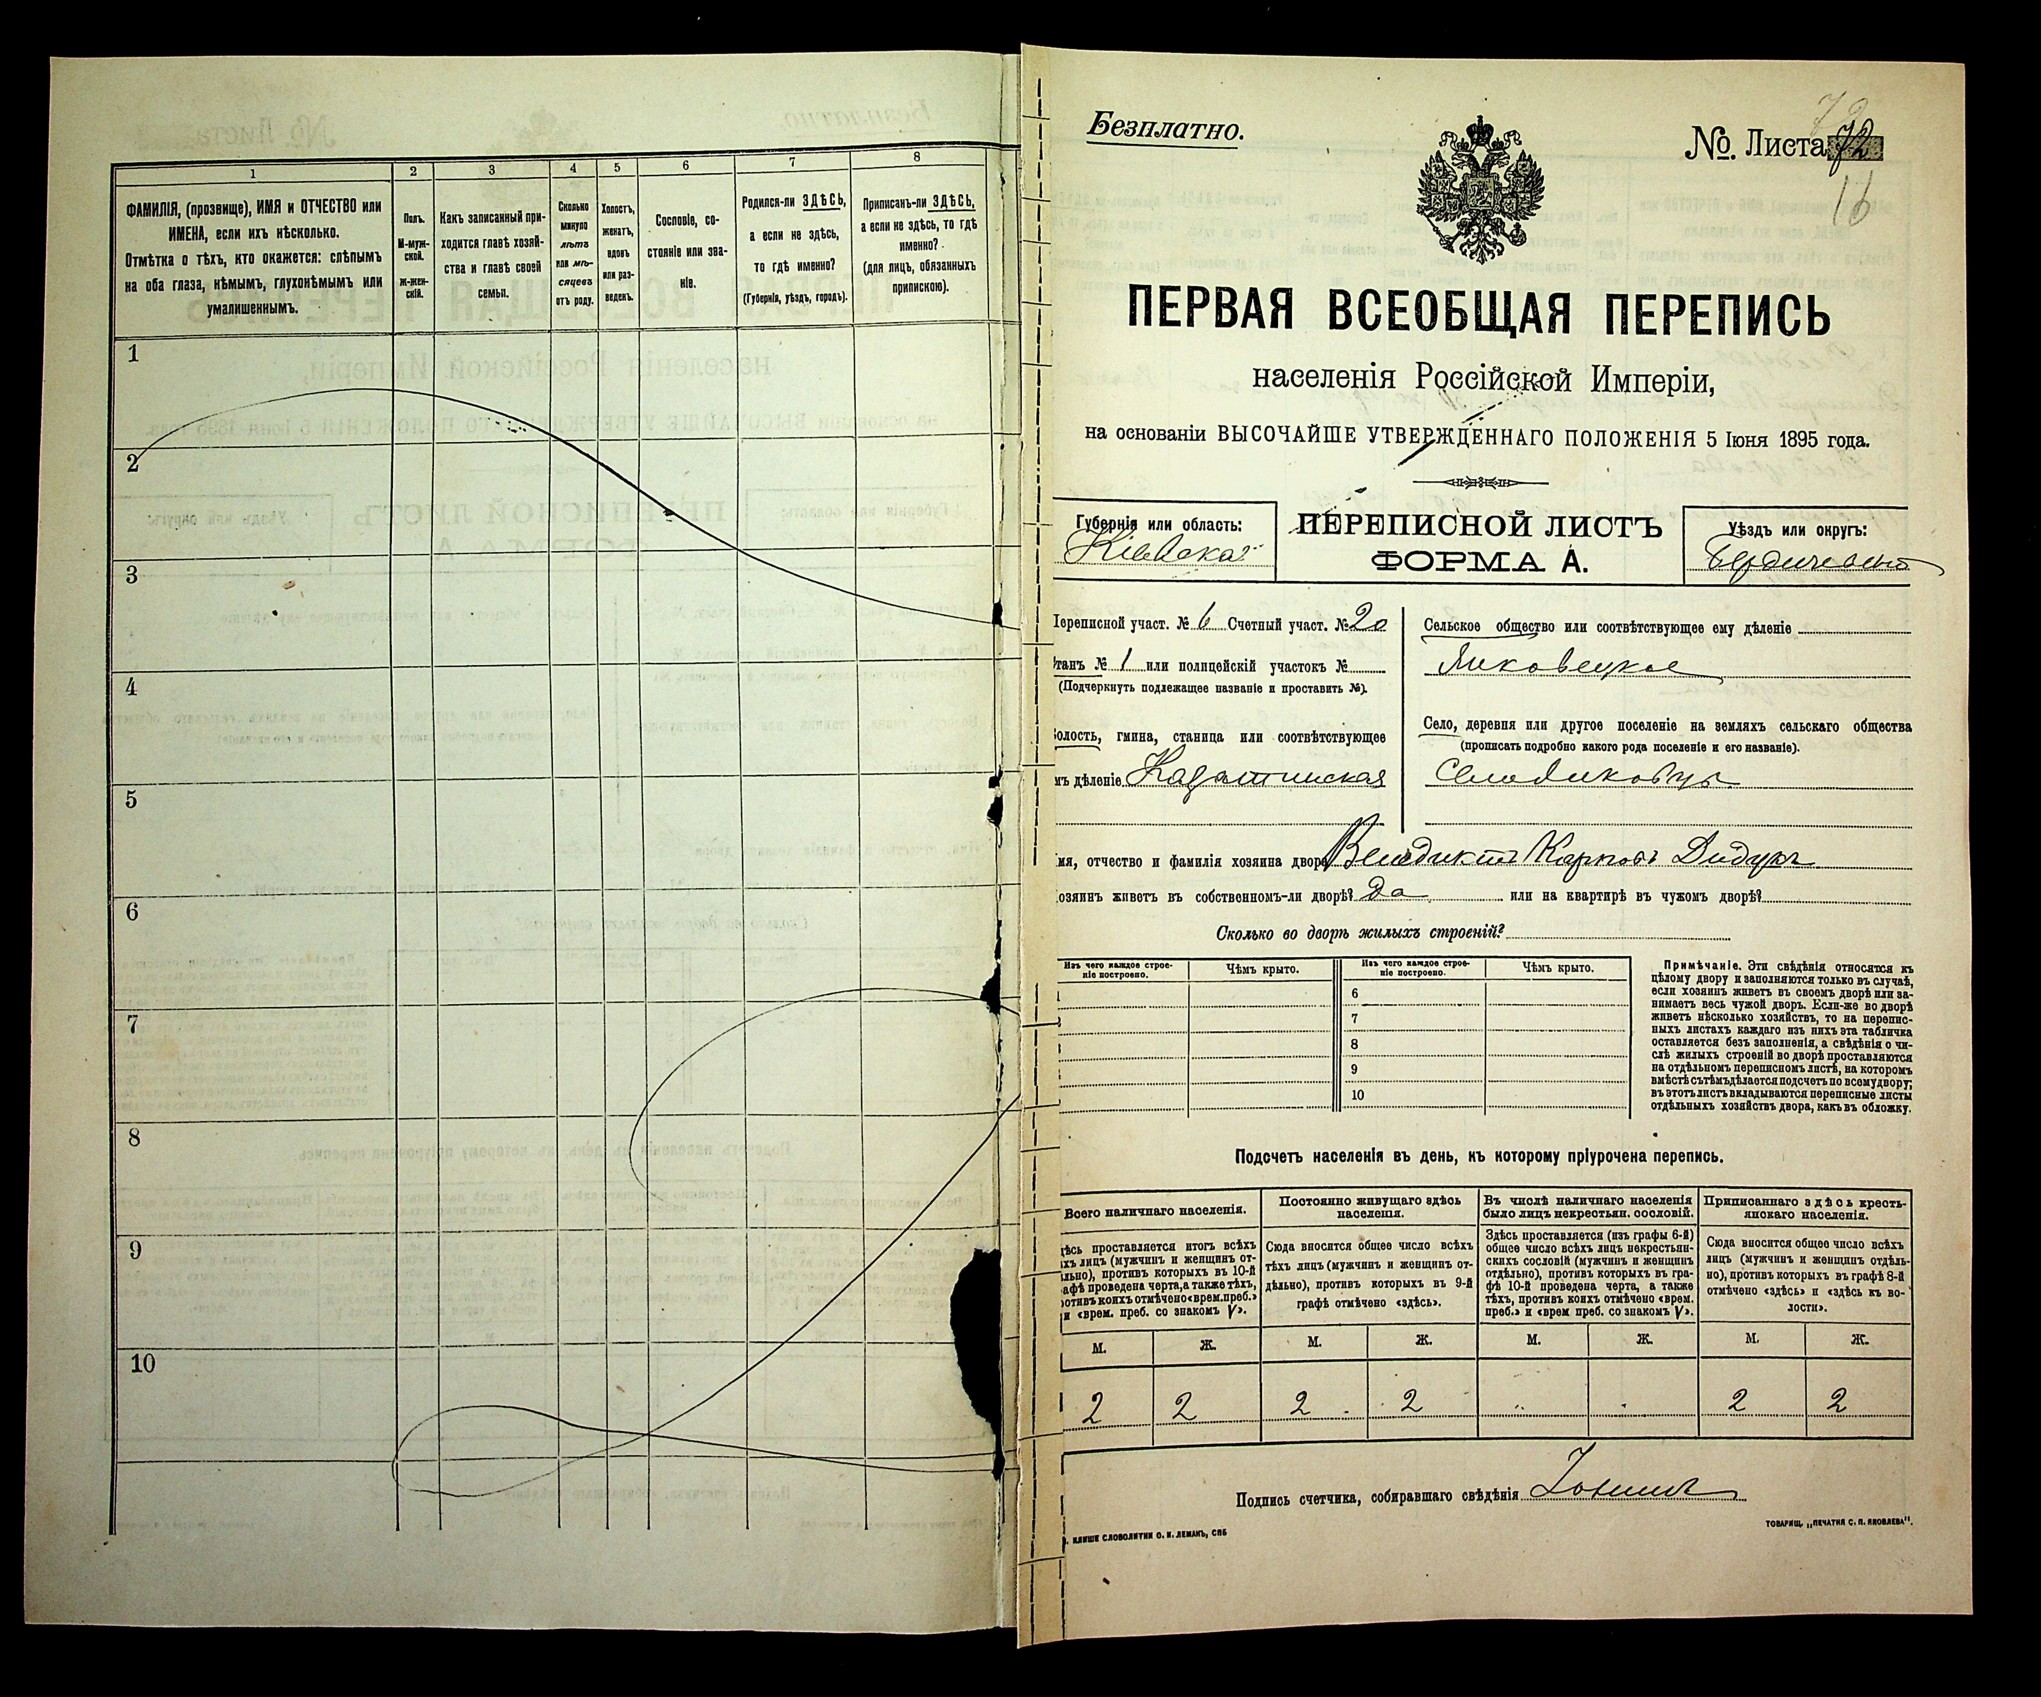 1
2
3
4
5
6
7
8
ФАМИЛІЯ, (прозвище), ИМЯ и ОТЧЕСТВО или
ИМЕНА, если ихъ нѣсколько.
Отмѣтка о тѣхъ, кто окажется: слѣпымъ
на оба глаза, нѣмымъ, глухонѣмымъ или
умалишеннымъ.
Полъ.
М-муж-
ской.
Ж-жен-
скій.
Какъ записанный при-
ходится главѣ хозяй-
ства и главѣ своей
семьи.
Сколько
минуло
лѣтъ
или мѣ-
сяцевъ
отъ роду.
Холостъ,
женатъ,
вдовъ
или раз-
веденъ.
Сословіе, со-
стояніе или зва-
ніе.
Родился-ли ЗДѢСЬ,
а если не здѣсь,
то гдѣ именно?
(Губернія, уѣздъ, городъ).
Приписанъ-ли ЗДѢСЬ,
а если не здѣсь, то гдѣ
именно?
(для лицъ, обязанныхъ
припискою).
1
2
3
4
5
6
7
8
9
10
Безплатно.
№ Листа 72
72
16
ПЕРВАЯ ВСЕОБЩАЯ ПЕРЕПИСЬ
населенія Россійской Имперіи,
на основаніи ВЫСОЧАЙШЕ УТВЕРЖДЕННАГО ПОЛОЖЕНІЯ 5 Іюня 1895 года.
Губернія или область:
Кіевская
ПЕРЕПИСНОЙ ЛИСТЪ
ФОРМА А.
Уѣздъ или округъ:
Бердичевскій
Переписной участ. № 6 Счетный участ. № 20
Станъ № 1 или полицейскій участокъ №
(Подчеркнуть подлежащее названіе и проставить №).
Волость, гмина, станица или соотвѣтствующее
имъ дѣленіе Казатинская
Сельское общество или соотвѣтствующее ему дѣленіе
Село, деревня или другое поселеніе на земляхъ сельскаго общества
(прописать подробно какого рода поселеніе и его названіе).
Село
Имя, отчество и фамилія хозяина двора Венедиктъ Карповъ Дидукъ
Хозяинъ живетъ въ собственномъ-ли дворѣ? Да или на квартирѣ въ чужомъ дворѣ?
Сколько во дворѣ жилыхъ строеній?
Изъ чего каждое строе-
ніе построено.
Чѣмъ крыто.
Изъ чего каждое строе-
ніе построено.
Чѣмъ крыто.
6
7
8
9
10
Примѣчаніе. Эти свѣдѣнія относятся къ
цѣлому двору и заполняются только въ случаѣ,
если хозяинъ живетъ въ своемъ дворѣ или за-
нимаетъ весь чужой дворъ. Если-же во дворѣ
живетъ нѣсколько хозяйствъ, то на перепис-
ныхъ листахъ каждаго изъ нихъ эта табличка
оставляется безъ заполненія, а свѣдѣнія о чи-
слѣ жилыхъ строеній во дворѣ проставляются
на отдѣльномъ переписномъ листѣ, на которомъ
вмѣстѣ съ тѣмъ дѣлается подсчетъ по всему двору;
въ этотъ листъ вкладываются переписные листы
отдѣльныхъ хозяйствъ двора, какъ въ обложку.
Подсчетъ населенія въ день, къ которому пріурочена перепись.
Всего наличнаго населенія.
Постоянно живущаго здѣсь
населенія.
Въ числѣ наличнаго населенія
было лицъ некрестьян. сословій.
Приписаннаго здѣсь кресть-
янскаго населенія.
Здѣсь проставляется итогъ всѣхъ
тѣхъ лицъ (мужчинъ и женщинъ от-
дѣльно), противъ которыхъ въ 10-й
графѣ проведена черта, а также тѣхъ,
противъ коихъ отмѣчено «врем. преб.»
и «врем. преб. со знакомъ V».
Сюда вносится общее число всѣхъ
тѣхъ лицъ (мужчинъ и женщинъ от-
дѣльно), противъ которыхъ въ 9-й
графѣ отмѣчено «здѣсь».
Здѣсь проставляется (изъ графы 6-й)
общее число всѣхъ лицъ некрестьян-
скихъ сословій (мужчинъ и женщинъ
отдѣльно), противъ которыхъ въ гра-
фѣ 10-й проведена черта, а также
тѣхъ, противъ коихъ отмѣчено «врем.
преб.» и «врем преб. со знакомъ V».
Сюда вносится общее число всѣхъ
лицъ (мужчинъ и женщинъ отдѣль-
но), противъ которыхъ въ графѣ 8-й
отмѣчено «здѣсь» и «здѣсь къ во-
лости».
М. Ж. М. Ж. М. Ж. М. Ж.
2 2 2 2 2 2
Подпись счетчика, собиравшаго свѣдѣнія
КЛИШЕ СЛОВОЛИТНИ О. И. ЛЕМАНЪ, СПБ
ТОВАРИЩ. „ПЕЧАТНЯ С. П. ЯКОВЛЕВА".